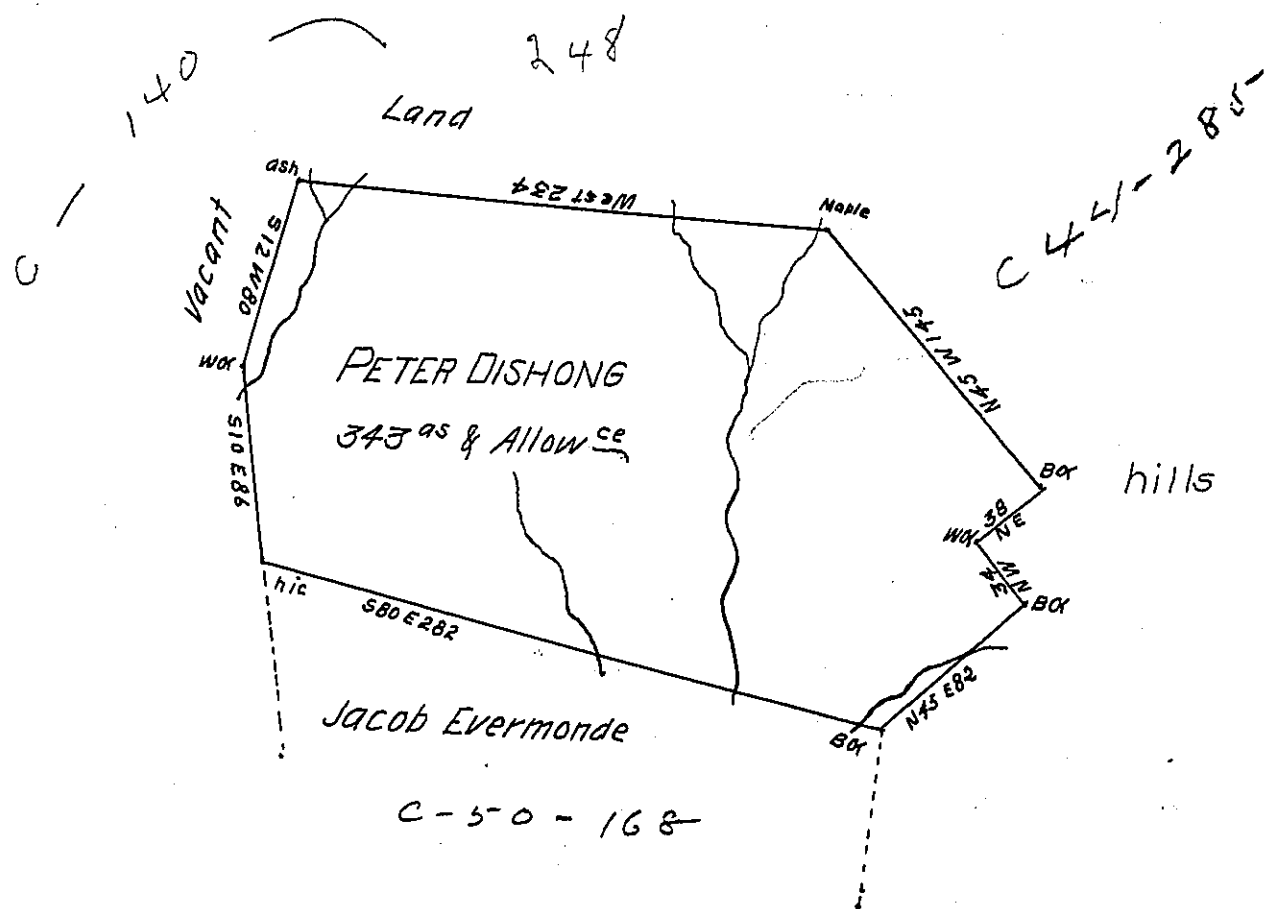 248
C - 140
Land
C44-285
ash
West 234
Maple
Vacant
S12W80
N45W145
WO
PETER DISHONG
343 as & Allow ce
S10E86
BO
hills
38
NE
WO
NW
34
BO
hic
S80E282
N45E82
BO
Jacob Evermonde
C-50-168